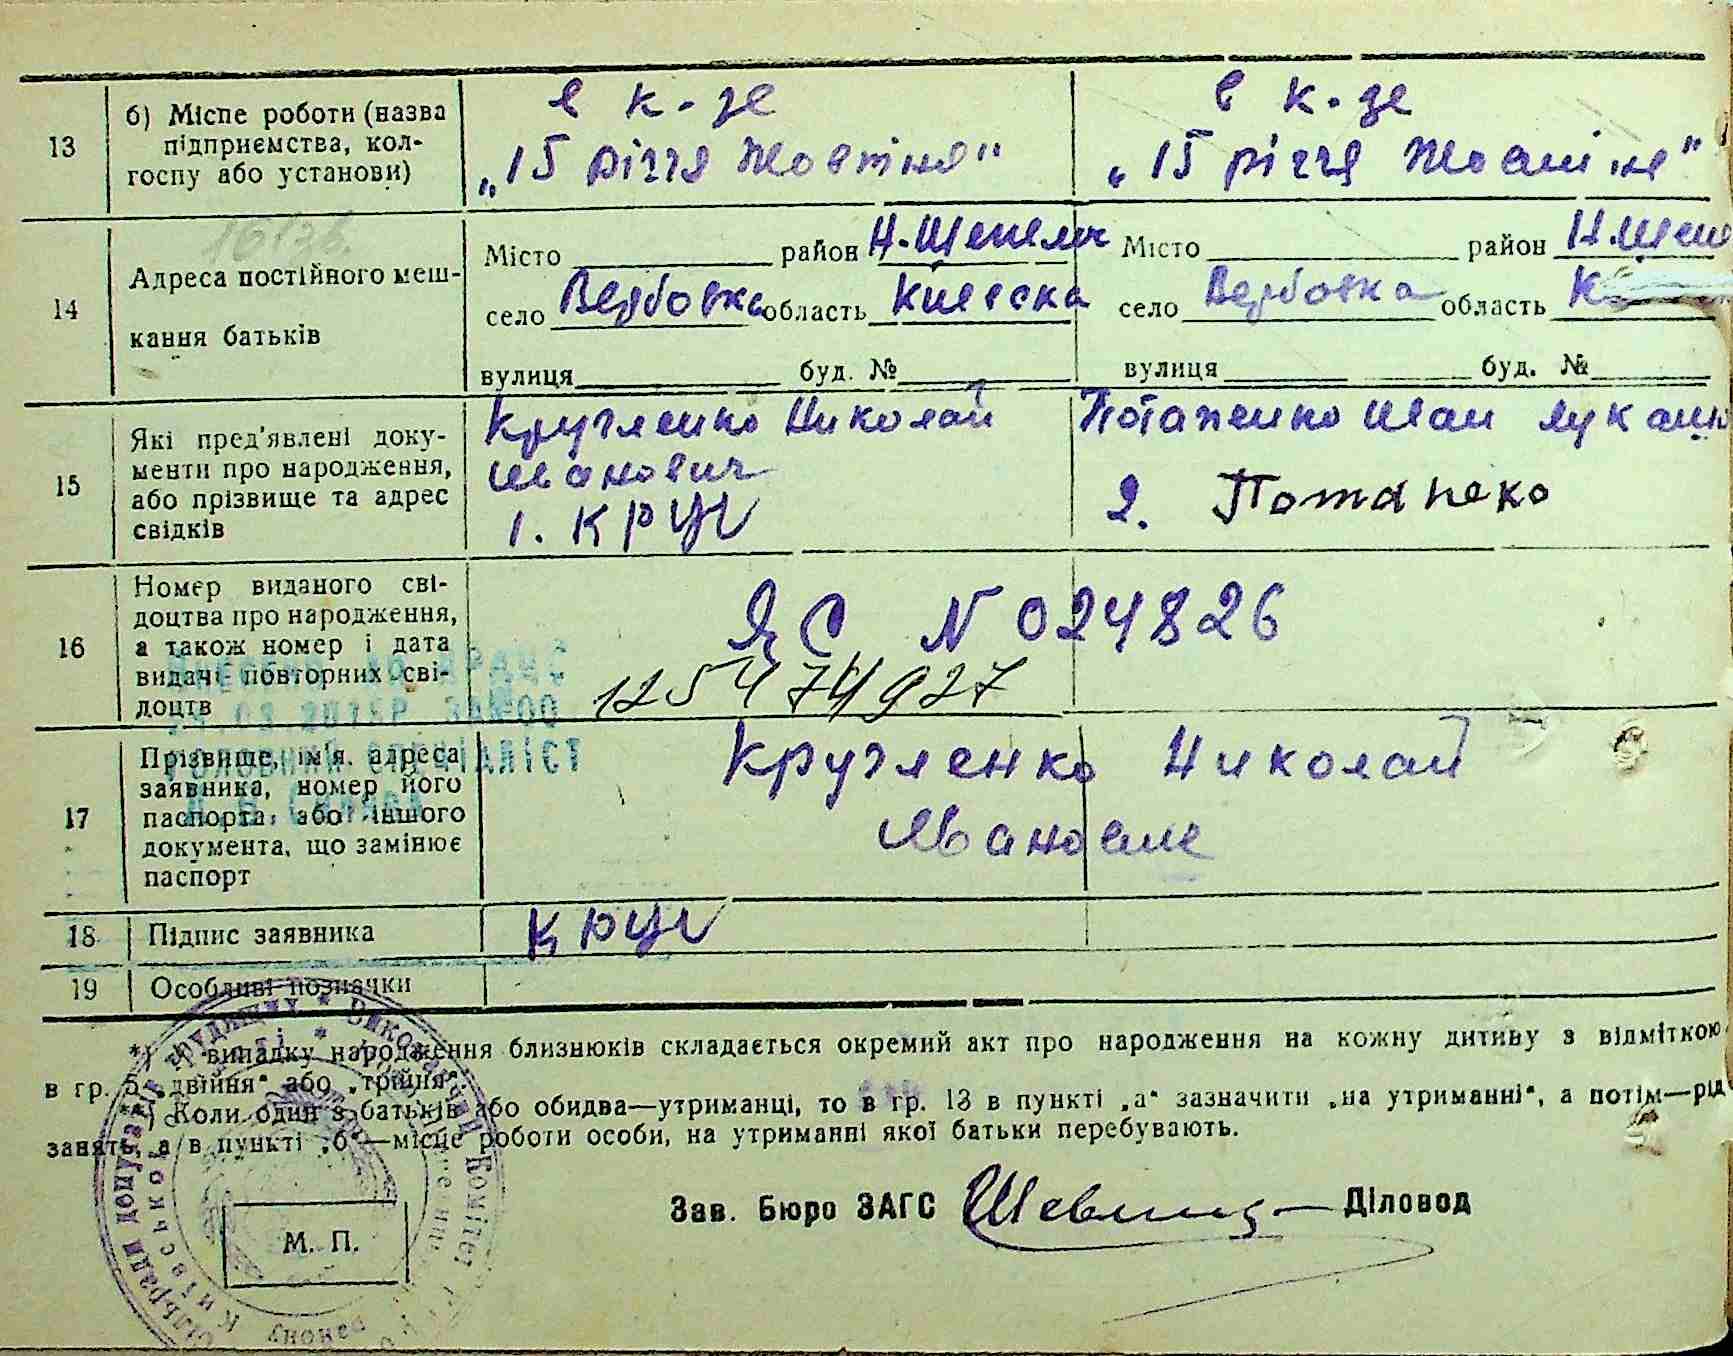 в к-зе в к-зе
13 б) Місце роботи (назва підприємства, колгоспу або установи)
„15 річчя Жовтня" „15 річчя Жовтня"
Місто район Н.Шепелич Місто район Н.Шепе
14 Адреса постійного мешкання батьків
село Вербовка область Киевска село Вербовка область К
вулиця буд. № вулиця буд. №
15 Які пред'явлені документи про народження, або прізвище та адрес свідків
Кругленко Николай Потапенко Иван Лукаш
Иванович
1. Круг 2. Потапеко
16 Номер виданого свідоцтва про народження, а також номер і дата видачі повторних свідоцтв
ЯС N 024826
125474927
17 Прізвище, ім'я, адреса заявника, номер його паспорта, або іншого документа, що замінює паспорт
Кругленко Николай
Иванович
18 Підпис заявника Круг
19 Особливі позначки
*) У випадку народження близнюків складається окремий акт про народження на кожну дитину з відміткою
в гр. 5 „двійня" або „трійня".
) Коли один з батьків або обидва—утриманці, то в гр. 13 в пункті „а" зазначити „на утриманні", а потім—рід
занять, а в пункті „б"—місце роботи особи, на утриманні якої батьки перебувають.
Зав. Бюро ЗАГС Діловод
М. П.
ГОЛОВНИЙ СПЕЦІАЛІСТ